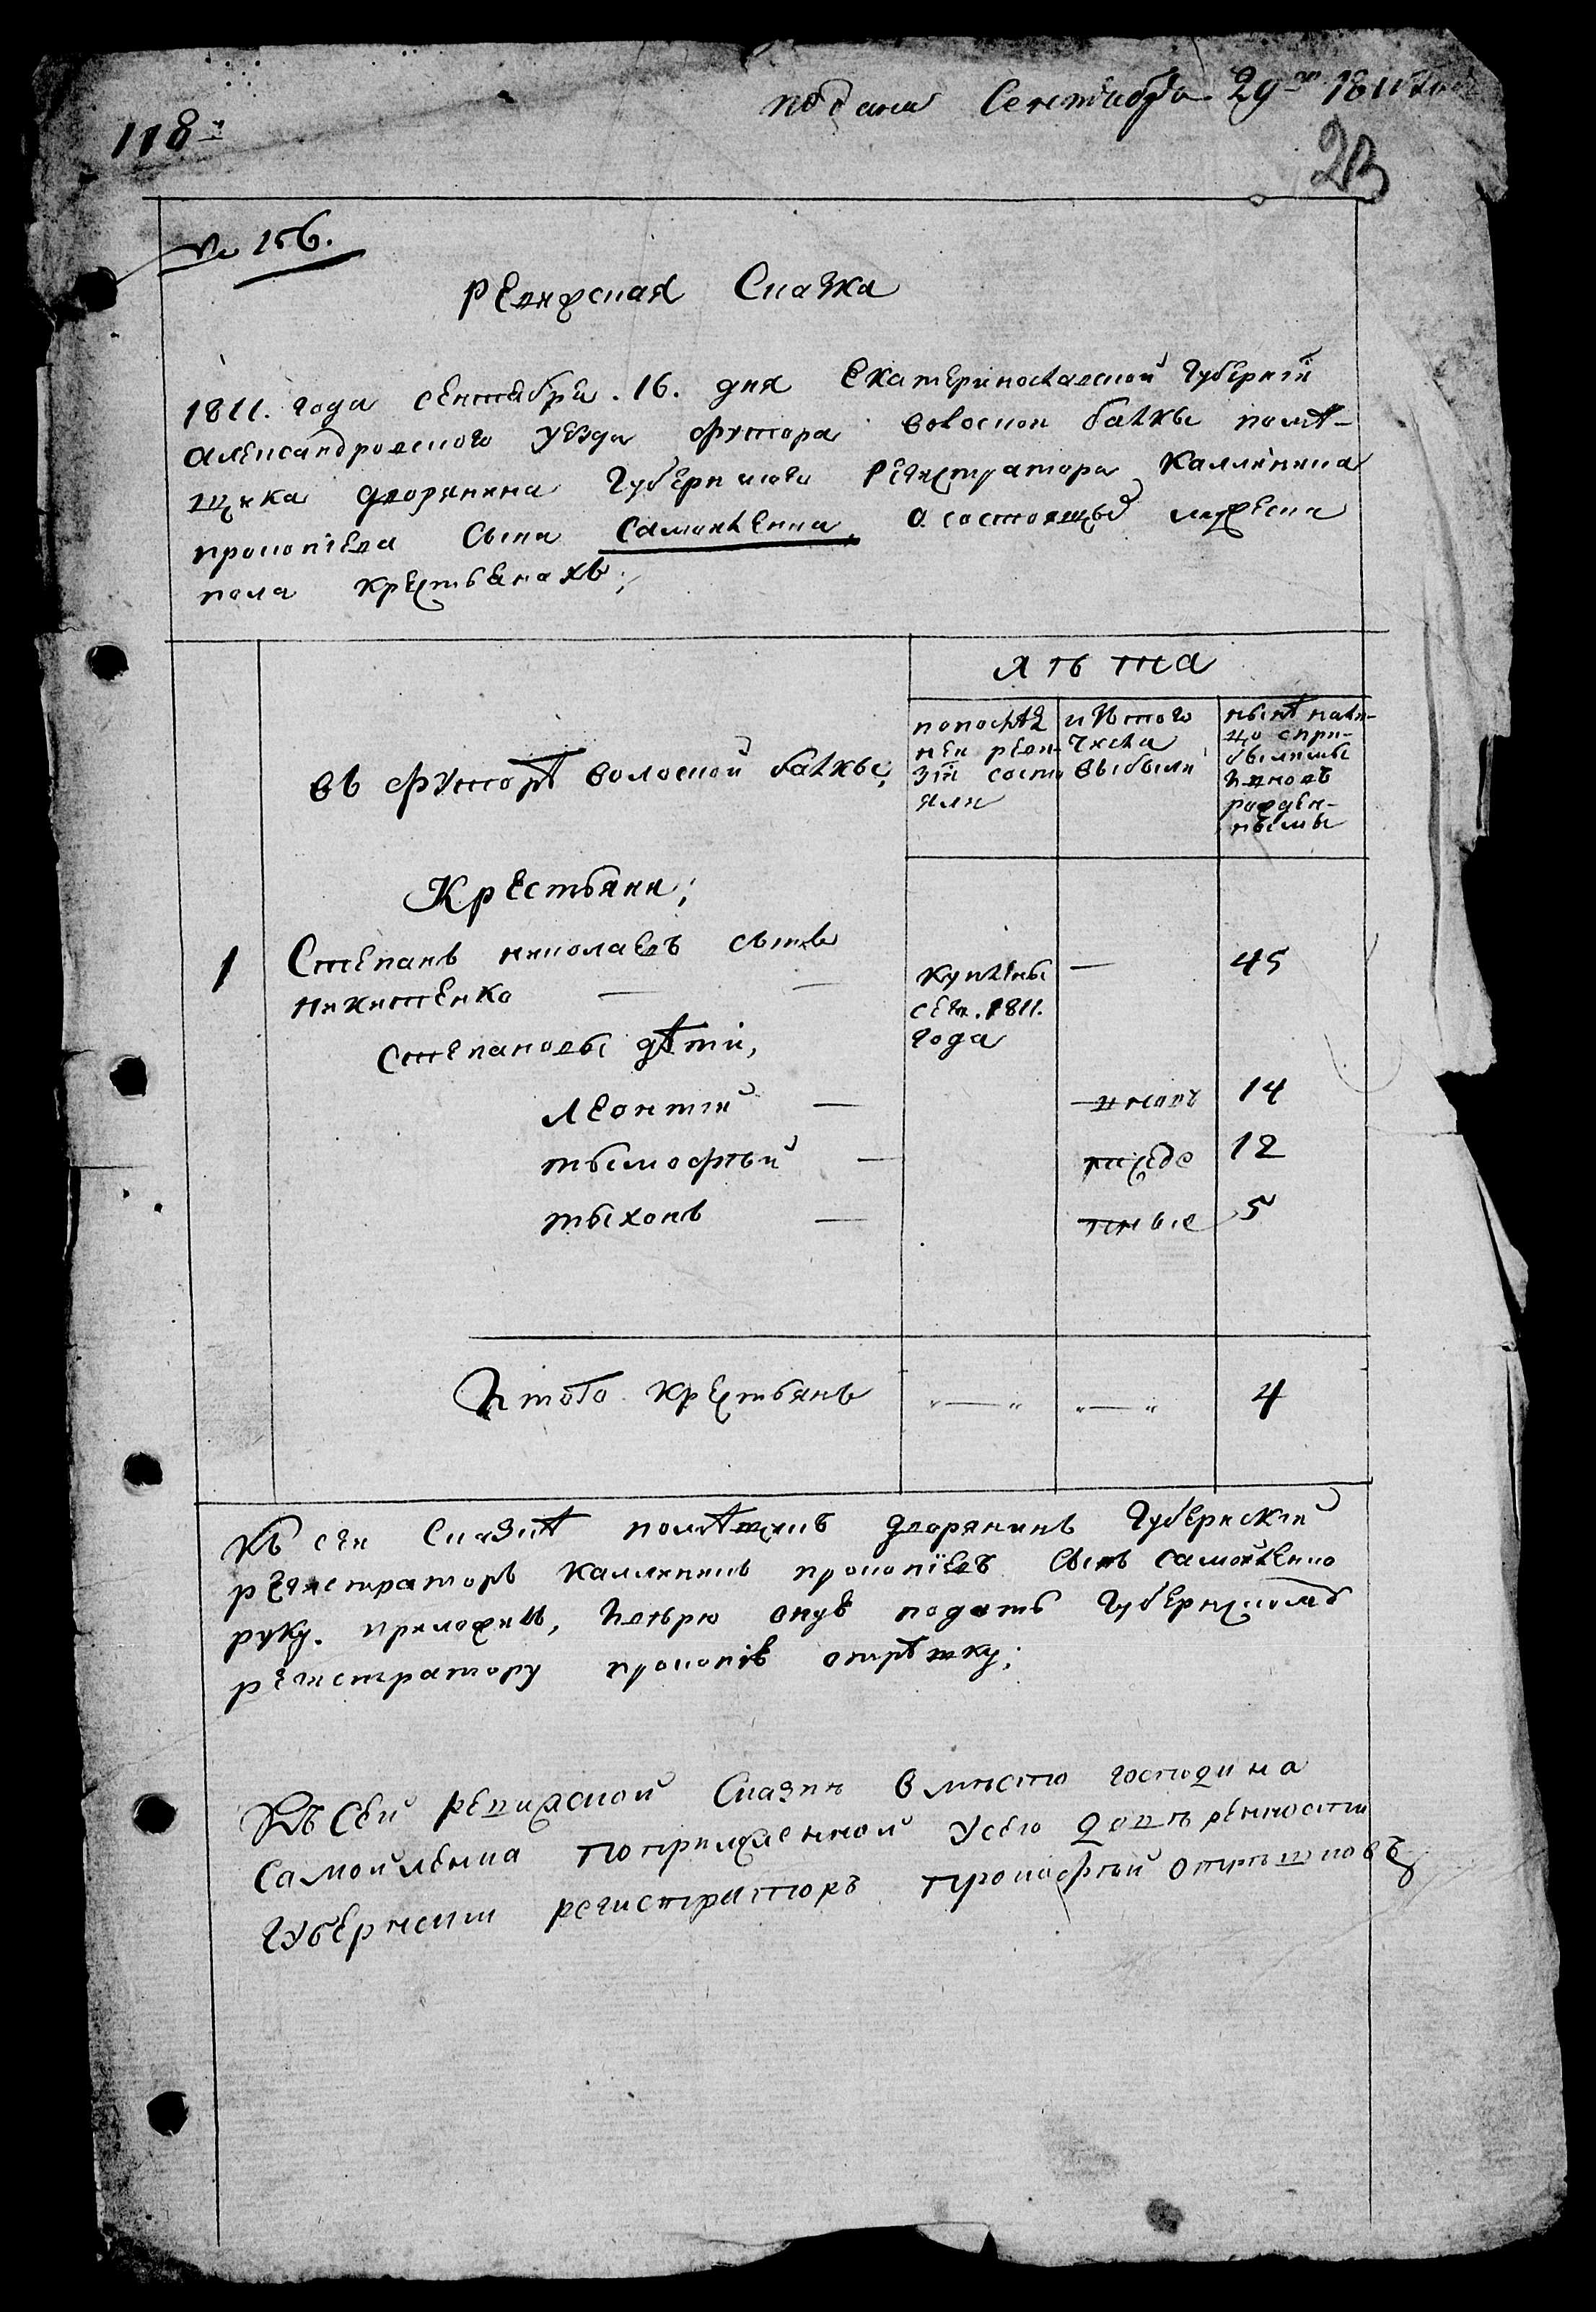 подана Сентября 29го 1811 Года
118.
23
№ 156.
Ревижская Скаска
1811. года сентября. 16. дня Екатеринославской Губернїи
александровского уезда футора волоской балкы помѣ-
щика дворянина Губернского регистратора Каллиника
прокопїева Сына Самойленка, о состоящых мужеска
пола крестьянахъ;
лѣта
въ футорѣ волоской балкы;
попослѣд
ней реви-
зїи состо
яли
изтого
числа
выбыли
нынѣ нали-
цо спри-
былымы
изновъ
рожден-
нымы
Крестьяни;
1 Степанъ николаевъ сынъ
никитенко — — куплены — 45
сен. 1811.
года
степановы дѣти,
леонтїй — 14
тымофтѣй — 12
тыхонъ — 5
Итого крестьянъ „—„ „—„ 4
Къ сей Сказкѣ помѣщикъ дворянинъ Губернскїй
регистраторъ каллиникъ прокопїевъ Сынъ самойленко
руку. приложилъ, ивѣрю онуѣ подать Губернскомъ
регистратору прокопїѣ отрѣшку;
Къ Сей ревижской Сказкѣ вмѣсто господина
Самойленка поприложенной усего довѣренности
Губернскии регистраторъ прокофтѣй отрѣшковъ